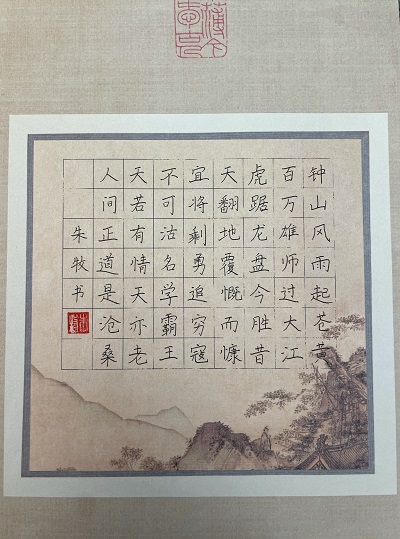 钟山风雨起苍黄
百万雄师过大江
虎踞龙盘今胜昔
天翻地覆慨而慷
宜将剩勇追穷寇
不可沽名学霸王
天若有情天亦老
人间正道是沧桑
朱牧书